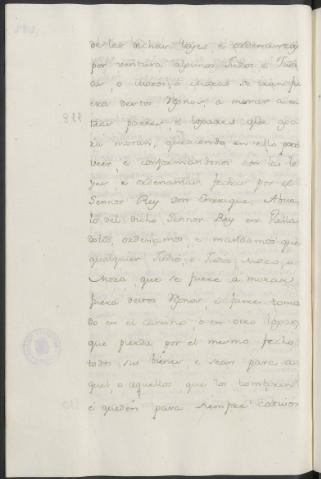 de las dichas Leyes, e ordenanzas
por ventura algunos Judios e Judi
as, o moros, o moras se
fuera destos Rejnos, a morar a o
tras partes e lugares que aqui
moran, queriendo en ello pro
veer e conformandonos con las le
yes e ordenanzas fechas por el
Sennor Rey don Enrique, Abue
lo del dicho Sennor Rey en Valla
dolid, ordenamos, e mandamos que
qualquier Judio, e Judia, Moro, o
Mora, que se fuere a morar
fuera destos Rejnos, e fuere toma
do en el camino o en otro logar,
que pierda por el mesmo fecho
todos sus bienes, e sean para a
quel, o aquellos que los tomaren
e queden para siempre cativos